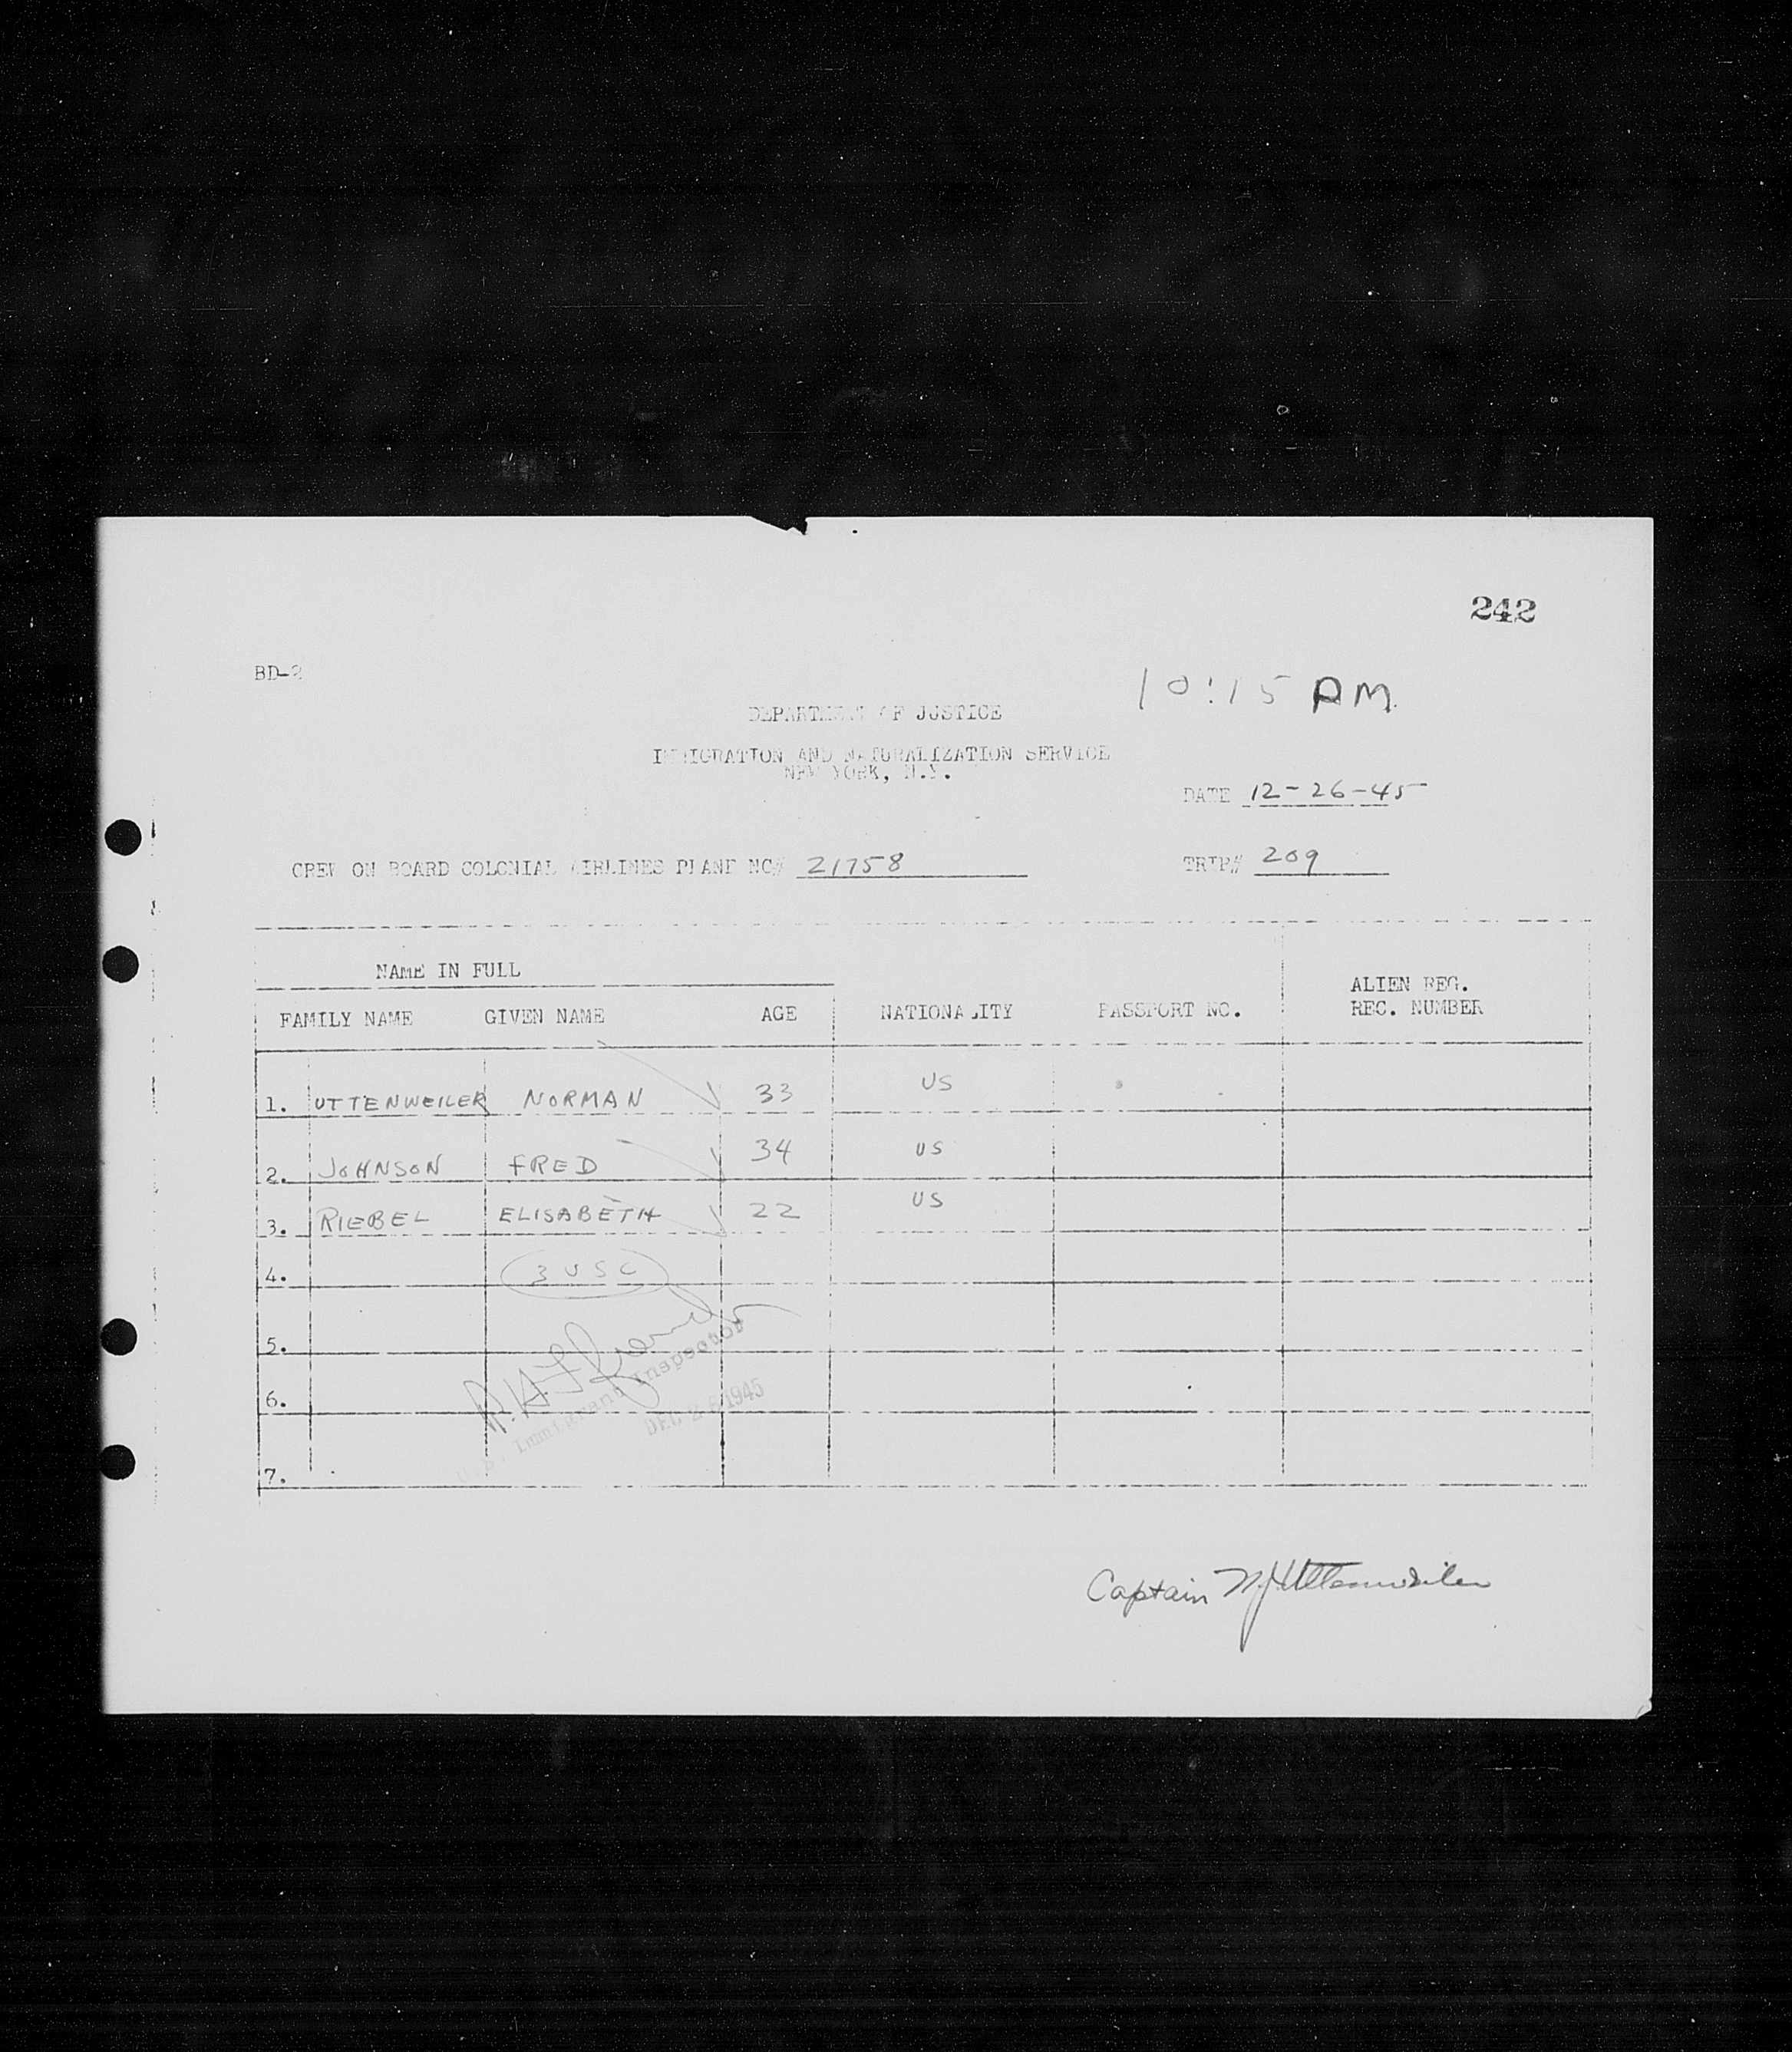 242
BD-2
10:15 PM.
DEPARTMENT OF JUSTICE
IMMIGRATION AND NATURALIZATION SERVICE
NEW YORK, N.Y.
DATE 12-26-45
CREW ON BOARD COLONIAL AIRLINES PLANE NC# 21758 TRIP# 209
NAME IN FULL
FAMILY NAME GIVEN NAME AGE NATIONALITY PASSPORT NO. ALIEN REG. REC. NUMBER
1. UTTENWEILER NORMAN 33 US
2. JOHNSON FRED 34 US
3. RIEBEL ELISABETH 22 US
4. 3 USC
5.
6.
7.
U.S. Immigrant Inspector
DEC 26 1945
Captain N J Uttenweiler